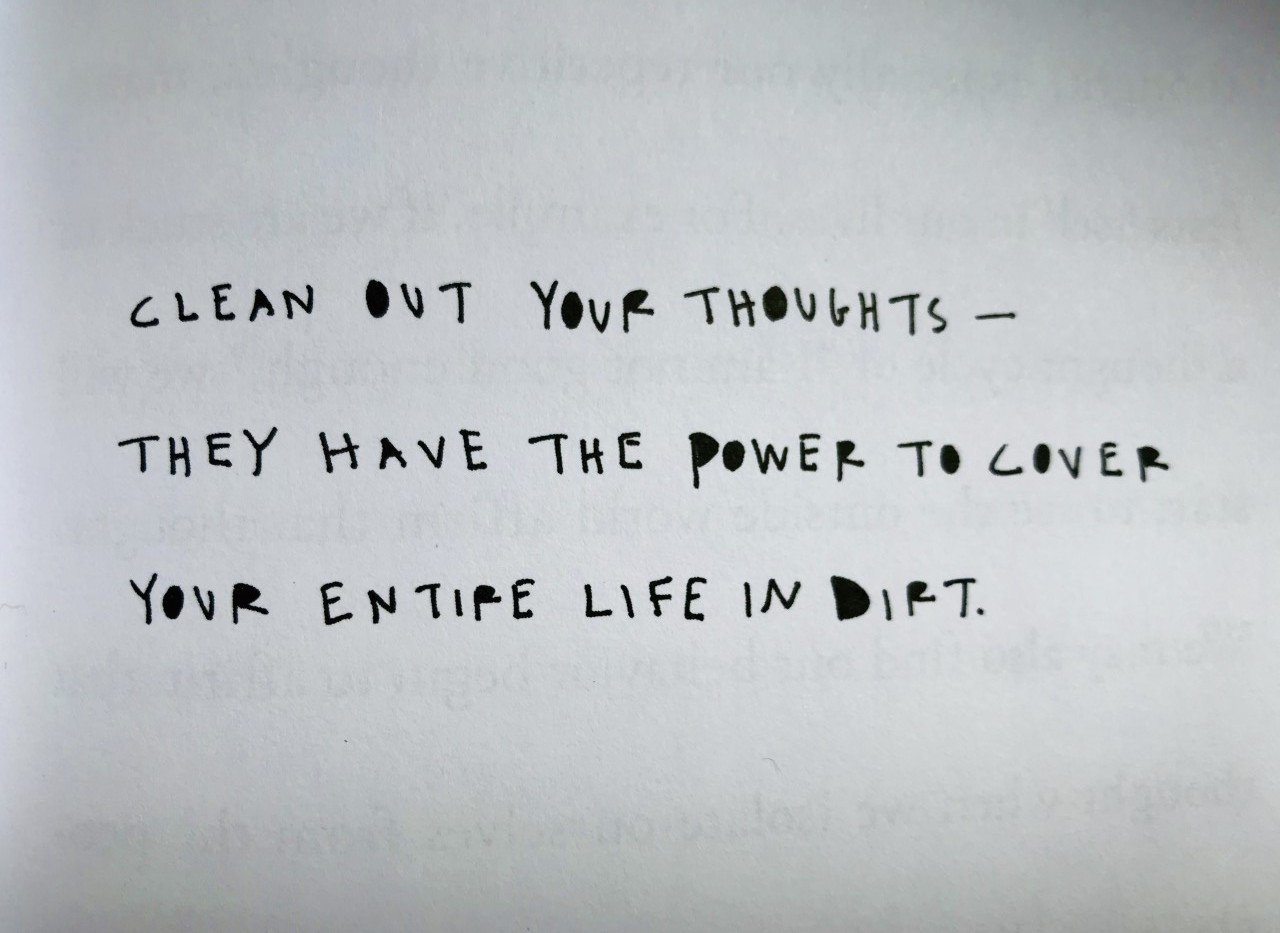 CLEAN OUT YOUR THOUGHTS —
THEY HAVE THE POWER TO COVER
YOUR ENTIRE LIFE IN DIRT.